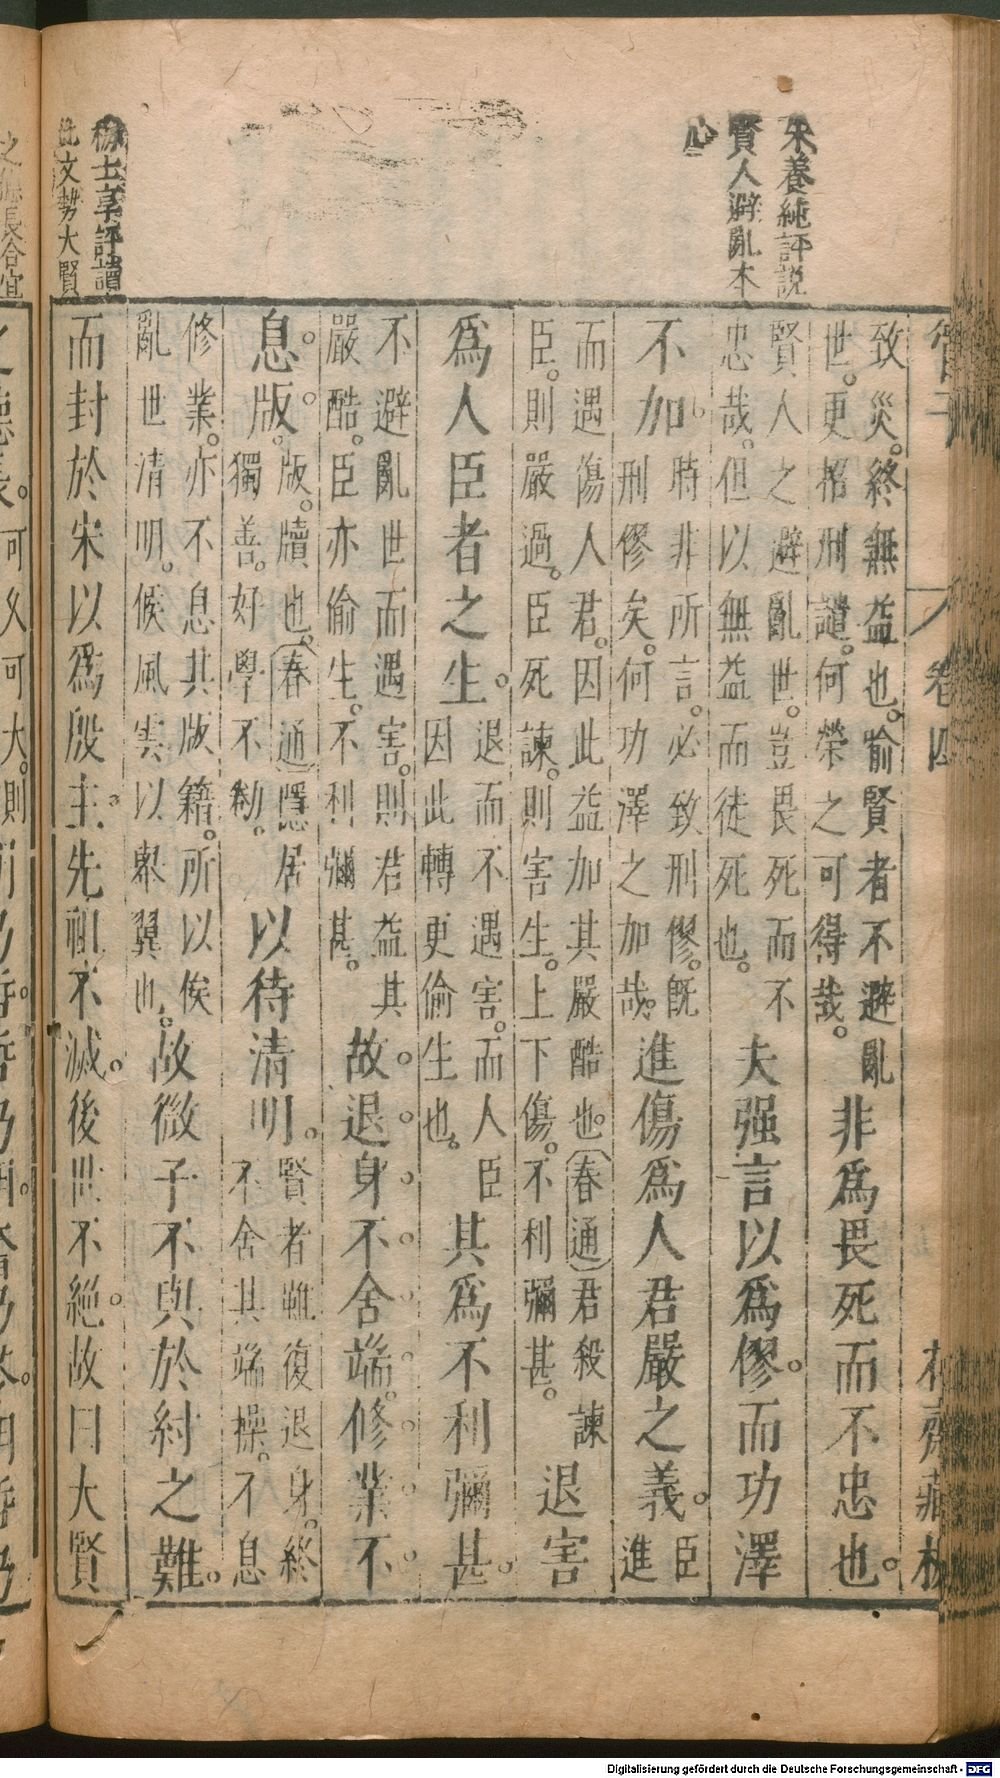 管子
卷四
花齋藏板
朱養純評說
賢人避亂本
心
致災。終無益也。喻賢者不避亂
世。更招刑譴。何榮之可得哉。
非爲畏死而不忠也。
賢人之避亂世。豈畏死而不
忠哉。但以無益而徒死也。
夫强言以爲僇。而功澤
不加。
時非所言。必致刑僇。旣
刑僇矣。何功澤之加哉。
進傷爲人君嚴之義。
臣進
而遇傷人君。因此益加其嚴酷也。春通君殺諫
臣。則嚴過。臣死諫。則害生。上下傷。不利彌甚。
退害
爲人臣者之生。
退而不遇害。而人臣
因此轉更偷生也。
其爲不利彌甚。
不避亂世而遇害。則君益其
嚴酷。臣亦偷生。不利彌甚。
故退身不舍端。修業不
息版。
版。牘也。春通隱居
獨善。好學不勌。
以待清明。
賢者雖復退身。終
不舍其端操。不息
修業。亦不息其版籍。所以俟
亂世清明。候風雲以䎡翼也。
故微子不與於紂之難。
而封於宋以爲殷主。先祖不滅。後世不絕。故曰大賢
柳士享評讀
此文勢大賢
之德長谷宜
之德長。可久可大。則
Digitalisierung gefördert durch die Deutsche Forschungsgemeinschaft - DFG